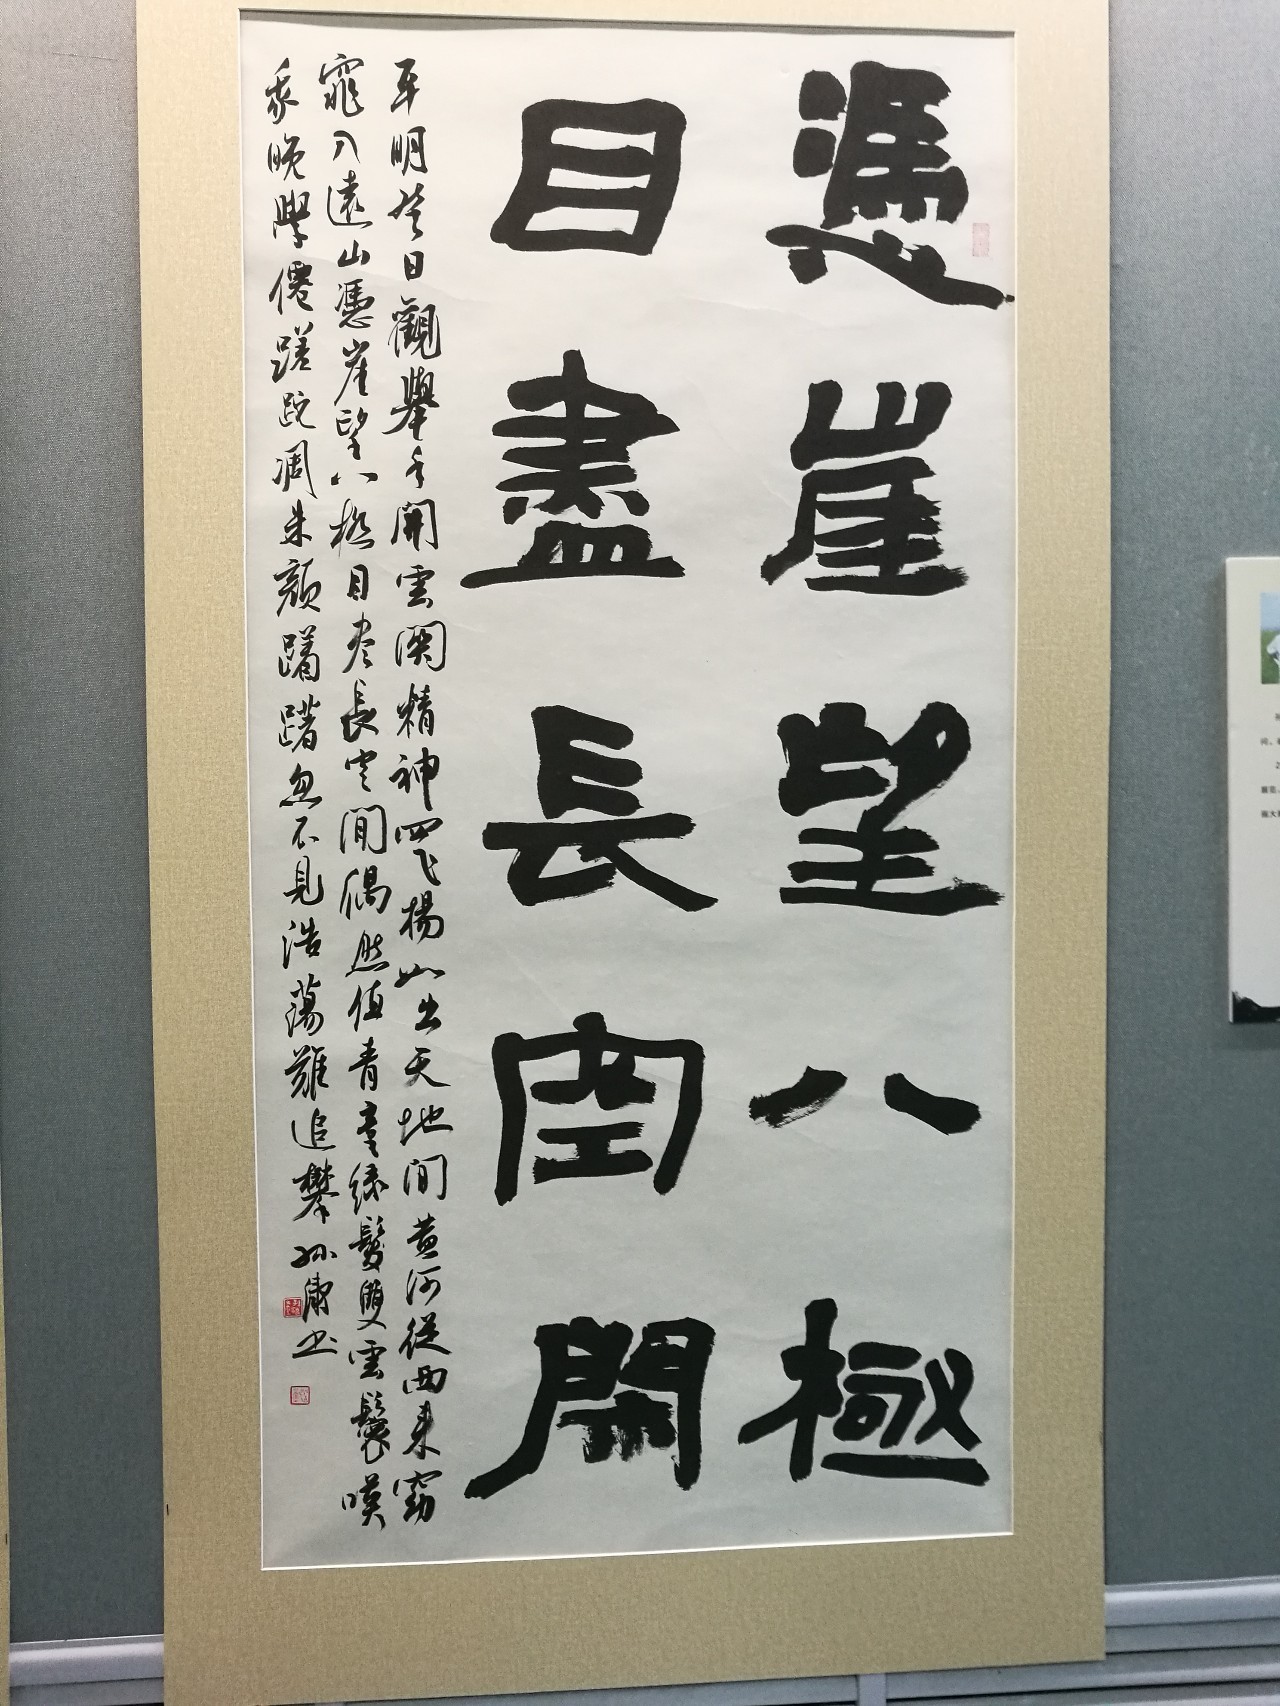 憑崖望八極
目盡長空閒
平明登日觀舉手開雲関精神四飛楊如出天地間黄河從西来窈
窕入遠山憑崖望八極目尽長空閒偶然值青童綠髮雙雲鬟嘆
我晚學僊蹉跎凋朱顔躊躇忽不見浩蕩難追攀 孫 書